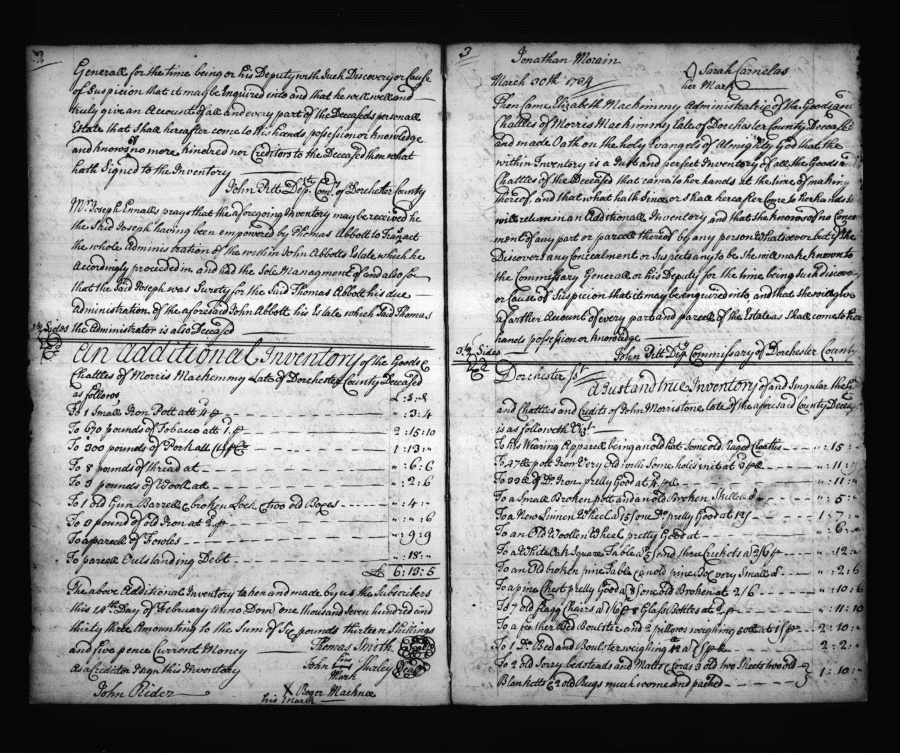 Generall for the time being or his Deputy with Such Discovery or Cause
of Suspicion that it may be Inquired into and that he will well and
truly give an Account of all and every part of the Deceaseds personall
Estate that Shall hereafter come to his hands posession or knowledge
and knows of no more kindred nor Creditors to the Deceased then what
hath Signed to the Inventory
John Pitt Depty Comry of Dorchester County
Mr Joseph Ennalls prays that the aforegoing Inventory may be received he
the Said Joseph having been empowered by Thomas Abbott to Transact
the whole administration of the within John Abbotts Estate which he
Accordingly proceeded in and had the Sole Managment of and also for
that the Said Joseph was Surety for the Said Thomas Abbott his due
Administration of the aforesaid John Abbott his Estate which Said Thomas
Sides the Administrator is also Deceased
An Additional Inventory of the Goods &
Chattles of Morris Mackemmy Late of Dorchester County Deceased
as follows £ : S : d
To 1 Small Iron Pott att 4 " : 3 : 4
To 670 pounds of Tobacco att 1 2 : 15 : 10
To 300 pounds of Pork att 1 : 13 : "
To 8 pounds of thread at " : 6 : 6
To 3 pounds of Wooll at " : 2 : 6
To 1 old Gun Barrell & broken Lock & two old Boxes " : 4 : "
To 3 pound of old Iron at 2 " : " : 6
To a parcell of Fowles " : 9 : 9
To parcell Outstanding Debt " : 18 : "
£ 6 : 13 : 5
The above Additional Inventory taken and made by us the Subscribers
this Day of February Anno Dom one thousand Seven hundred and
thirty three Amounting to the Sum of Six pounds thirteen Shillings
and five pence Current Money Thomas Smith Seal
As a Creditor I sign this Inventory John his Mark Seal
John Rider
X Roger Macknee
his Mark
3
Jonathan Morain
March 30th 1734 Sarah Carnelas
her Mark
Then Came Elizabeth Mackimmy Administratrix of the Goods and
Chattles of Morris Mackimmy late of Dorchester County Deceased
and made Oath on the holy Evangels of Almighty God that the
within Inventory is a Just and perfect Inventory of all the Goods &
Chattles of the Deceased that came to her hands at the time of making
thereof, and that what hath Since or Shall hereafter Come to her hands She
will return in an Additionall Inventory and that She knows of no Conceal
ment of any part or parcell thereof by any person Whatsoever but if She
Discovers any Concealment or Suspects any to be She will make known to
the Commissary Generall or his Deputy for the time being Such discovery
or Cause of Suspicion that it may be enquired into, and that She will give
a further Account of every part and parcell of the Estate as Shall come to her
hands possession or knowledge
Sides John Pitt Depty Commissary of Dorchester County
Dorchester
A Just and true Inventory of and Singular the
and Chattles and Credits of John Morristone, late of the aforesaid County Deceased
is as followeth Vizt
To his Wearing Apparell being an old hat Som old Rags Cloaths " : 15 :
To 47 pott Iron Very Old with Some holes in it at 3 " : 11 :
To 33 of Do Iron pretty Good at 4 " : 11 :
To a Small Broken pott and an old Broken Skillet " : 5 :
To a New Linnen Wheel a 15/ one Do pretty Good at 12/ 1 : 7 :
To an Old Woollen Wheel pretty Good at " : 6 :
To a White Oak Square Table a 5/ and three Crickets a 2/6 " : 12 :
To an Old broken pine Table & an old pine Box very Small " : 2 : 6
To a pine Chest pretty Good a 8/ one old Broken at 2/6 " : 10 : 6
To 7 old flagg Chairs a 1/6 & 8 Glass Bottles at 2 " : 11 : 10
To a feather Bed Boulster and 2 pillows weighing at 2 : 10 :
To 1 Do Bed and Boulster weighing at 2 : 2 :
To 2 old Sorry bedsteads and Matts & Cords 3 old two Sheets two old
Blanketts & 2 old Rugs much worne and patched 1 : 10 :